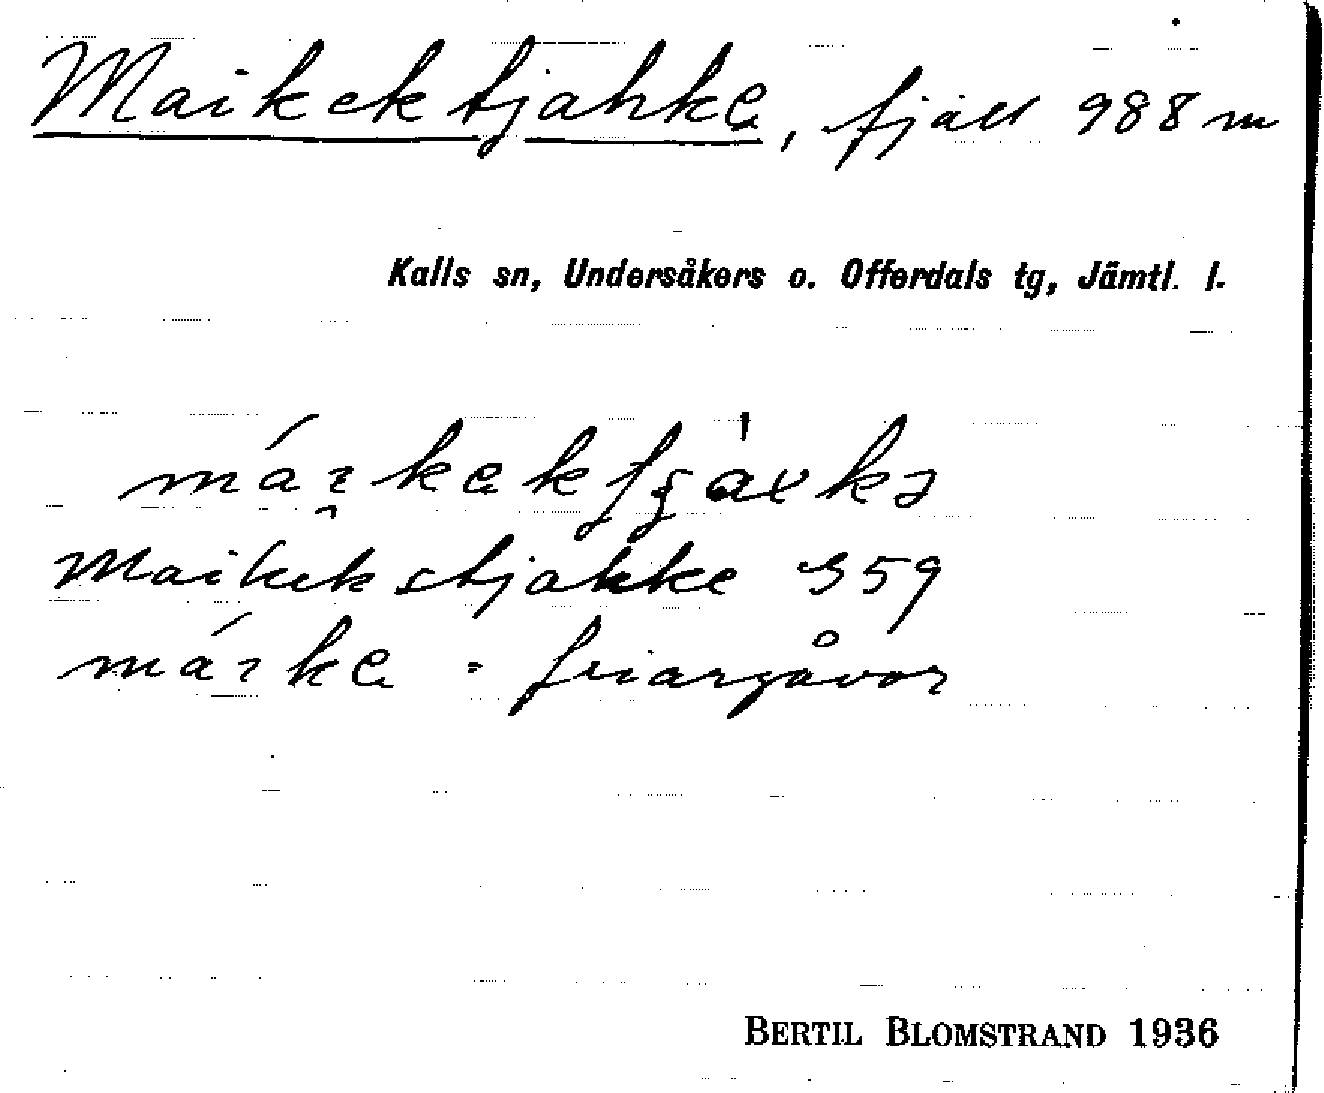 Maikektjahke, fjäll 988 m
Kalls sn, Undersåkers o. Offerdals tg, Jämtl. l.
Maikekstjakke S59
márke = friargåvor
BERTIL BLOMSTRAND 1936